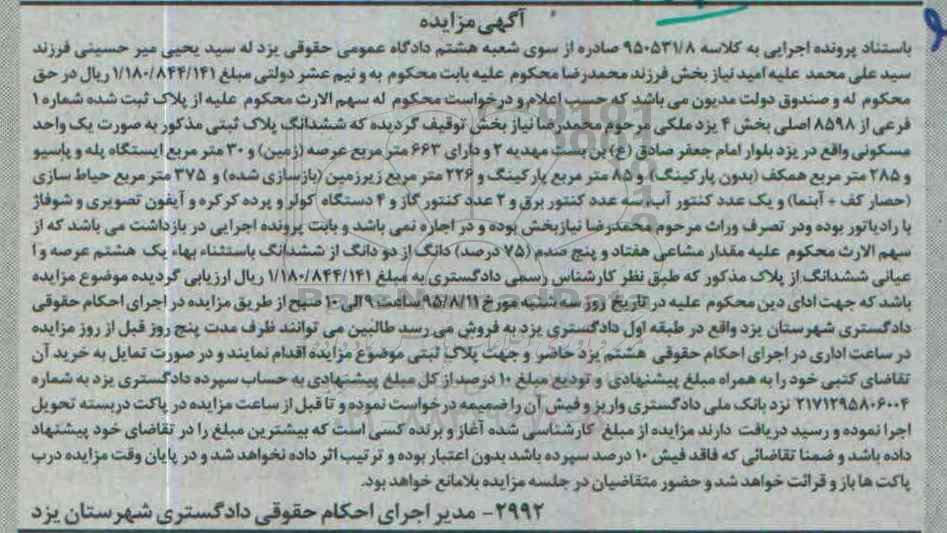 آگهی مزایده
باستناد پرونده اجرایی به کلاسه ۹۵۰۵۳۱/۸ صادره از سوی شعبه هشتم دادگاه عمومی حقوقی یزد له سید یحیی میر حسینی فرزند
سید علی محمد علیه امید نیاز بخش فرزند محمدرضا محکوم علیه بابت محکوم به و نیم عشر دولتی مبلغ ۱/۱۸۰/۸۴۴/۱۴۱ ریال در حق
محکوم له و صندوق دولت مدیون می باشد که حسب اعلام و درخواست محکوم له سهم الارث محکوم علیه از پلاک ثبت شده شماره ۱
فرعی از ۸۵۹۸ اصلی بخش ۴ یزد ملکی مرحوم محمدرضا نیاز بخش توقیف گردیده که ششدانگ پلاک ثبتی مذکور به صورت یک واحد
مسکونی واقع در یزد بلوار امام جعفر صادق (ع) بن بست مهدیه ۲ و دارای ۶۶۳ متر مربع عرصه (زمین) و ۳۰ متر مربع ایستگاه پله و پاسیو
و ۲۸۵ متر مربع همکف (بدون پارکینگ) و ۸۵ متر مربع پارکینگ و ۲۲۶ متر مربع زیرزمین (بازسازی شده) و ۳۷۵ متر مربع حیاط سازی
(حصار کف + آبنما) و یک عدد کنتور آب، سه عدد کنتور برق و ۲ عدد کنتور گاز و ۴ دستگاه کولر و پرده کرکره و آیفون تصویری و شوفاژ
با رادیاتور بوده ودر تصرف وراث مرحوم محمدرضا نیازبخش بوده و در اجاره نمی باشد و بابت پرونده اجرایی در بازداشت می باشد که از
سهم الارث محکوم علیه مقدار مشاعی هفتاد و پنج صدم (۷۵ درصد) دانگ از دو دانگ از ششدانگ باستثناء بهاء یک هشتم عرصه و ا
عیانی ششدانگ از پلاک مذکور که طبق نظر کارشناس رسمی دادگستری به مبلغ ۱/۱۸۰/۸۴۴/۱۴۱ ریال ارزیابی گردیده موضوع مزایده
باشد که جهت ادای دین محکوم علیه در تاریخ روز سه شنبه مورخ ۹۵/۸/۱۱ ساعت ۹ الی ۱۰ صبح از طریق مزایده در اجرای احکام حقوقی
دادگستری شهرستان یزد واقع در طبقه اول دادگستری یزد به فروش می رسد طالبین می توانند ظرف مدت پنج روز قبل از روز مزایده
در ساعت اداری در اجرای احکام حقوقی هشتم یزد حاضر و جهت پلاک ثبتی موضوع مزایده اقدام نمایند و در صورت تمایل به خرید آن
تقاضای کتبی خود را به همراه مبلغ پیشنهادی و تودیع مبلغ ۱۰ درصد از کل مبلغ پیشنهادی به حساب سپرده دادگستری یزد به شماره
۲۱۷۱۲۹۵۸۰۶۰۰۴ نزد بانک ملی دادگستری واریز و فیش آن را ضمیمه درخواست نموده و تا قبل از ساعت مزایده در پاکت دربسته تحویل
اجرا نموده و رسید دریافت دارند مزایده از مبلغ کارشناسی شده آغاز و برنده کسی است که بیشترین مبلغ را در تقاضای خود پیشنهاد
داده باشد و ضمنا تقاضائی که فاقد فیش ۱۰ درصد سپرده باشد بدون اعتبار بوده و ترتیب اثر داده نخواهد شد و در پایان وقت مزایده درب
پاکت ها باز و قرائت خواهد شد و حضور متقاضیان در جلسه مزایده بلامانع خواهد بود.
۲۹۹۲- مدیر اجرای احکام حقوقی دادگستری شهرستان یزد